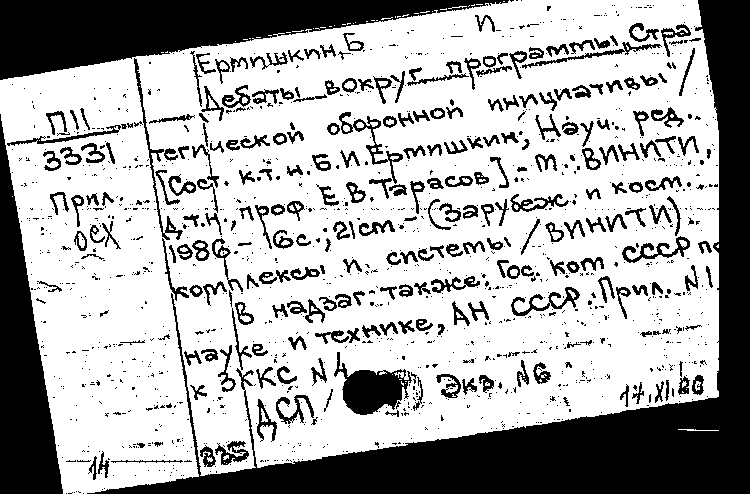 Ермишкин, Б И
Дебаты вокруг программы „Стра-
тегической оборонной инициативы" /
[Сост. к.т.н. Б.И. Ермишкин; Науч. ред.
д.т.н., проф. Е.В. Тарасов]. - М.: ВИНИТИ,
1986. - 16с.; 21см. - (Зарубеж. и косм.
комплексы и системы / ВИНИТИ).
В надзаг. также: Гос. ком. СССР по
науке и технике, АН СССР. Прил. N1
к ЗККС N4
ДСП / Экз. N6
17.XI.
П11
3331
Прил.
осх
14